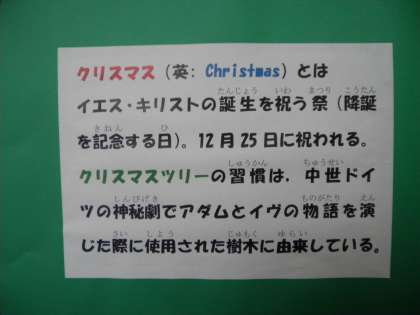 クリスマス（英: Christmas）とは
イエス・キリストの誕生を祝う祭（降誕
を記念する日）。12月25日に祝われる。
クリスマスツリーの習慣は、中世ドイ
ツの神秘劇でアダムとイヴの物語を演
じた際に使用された樹木に由来している。